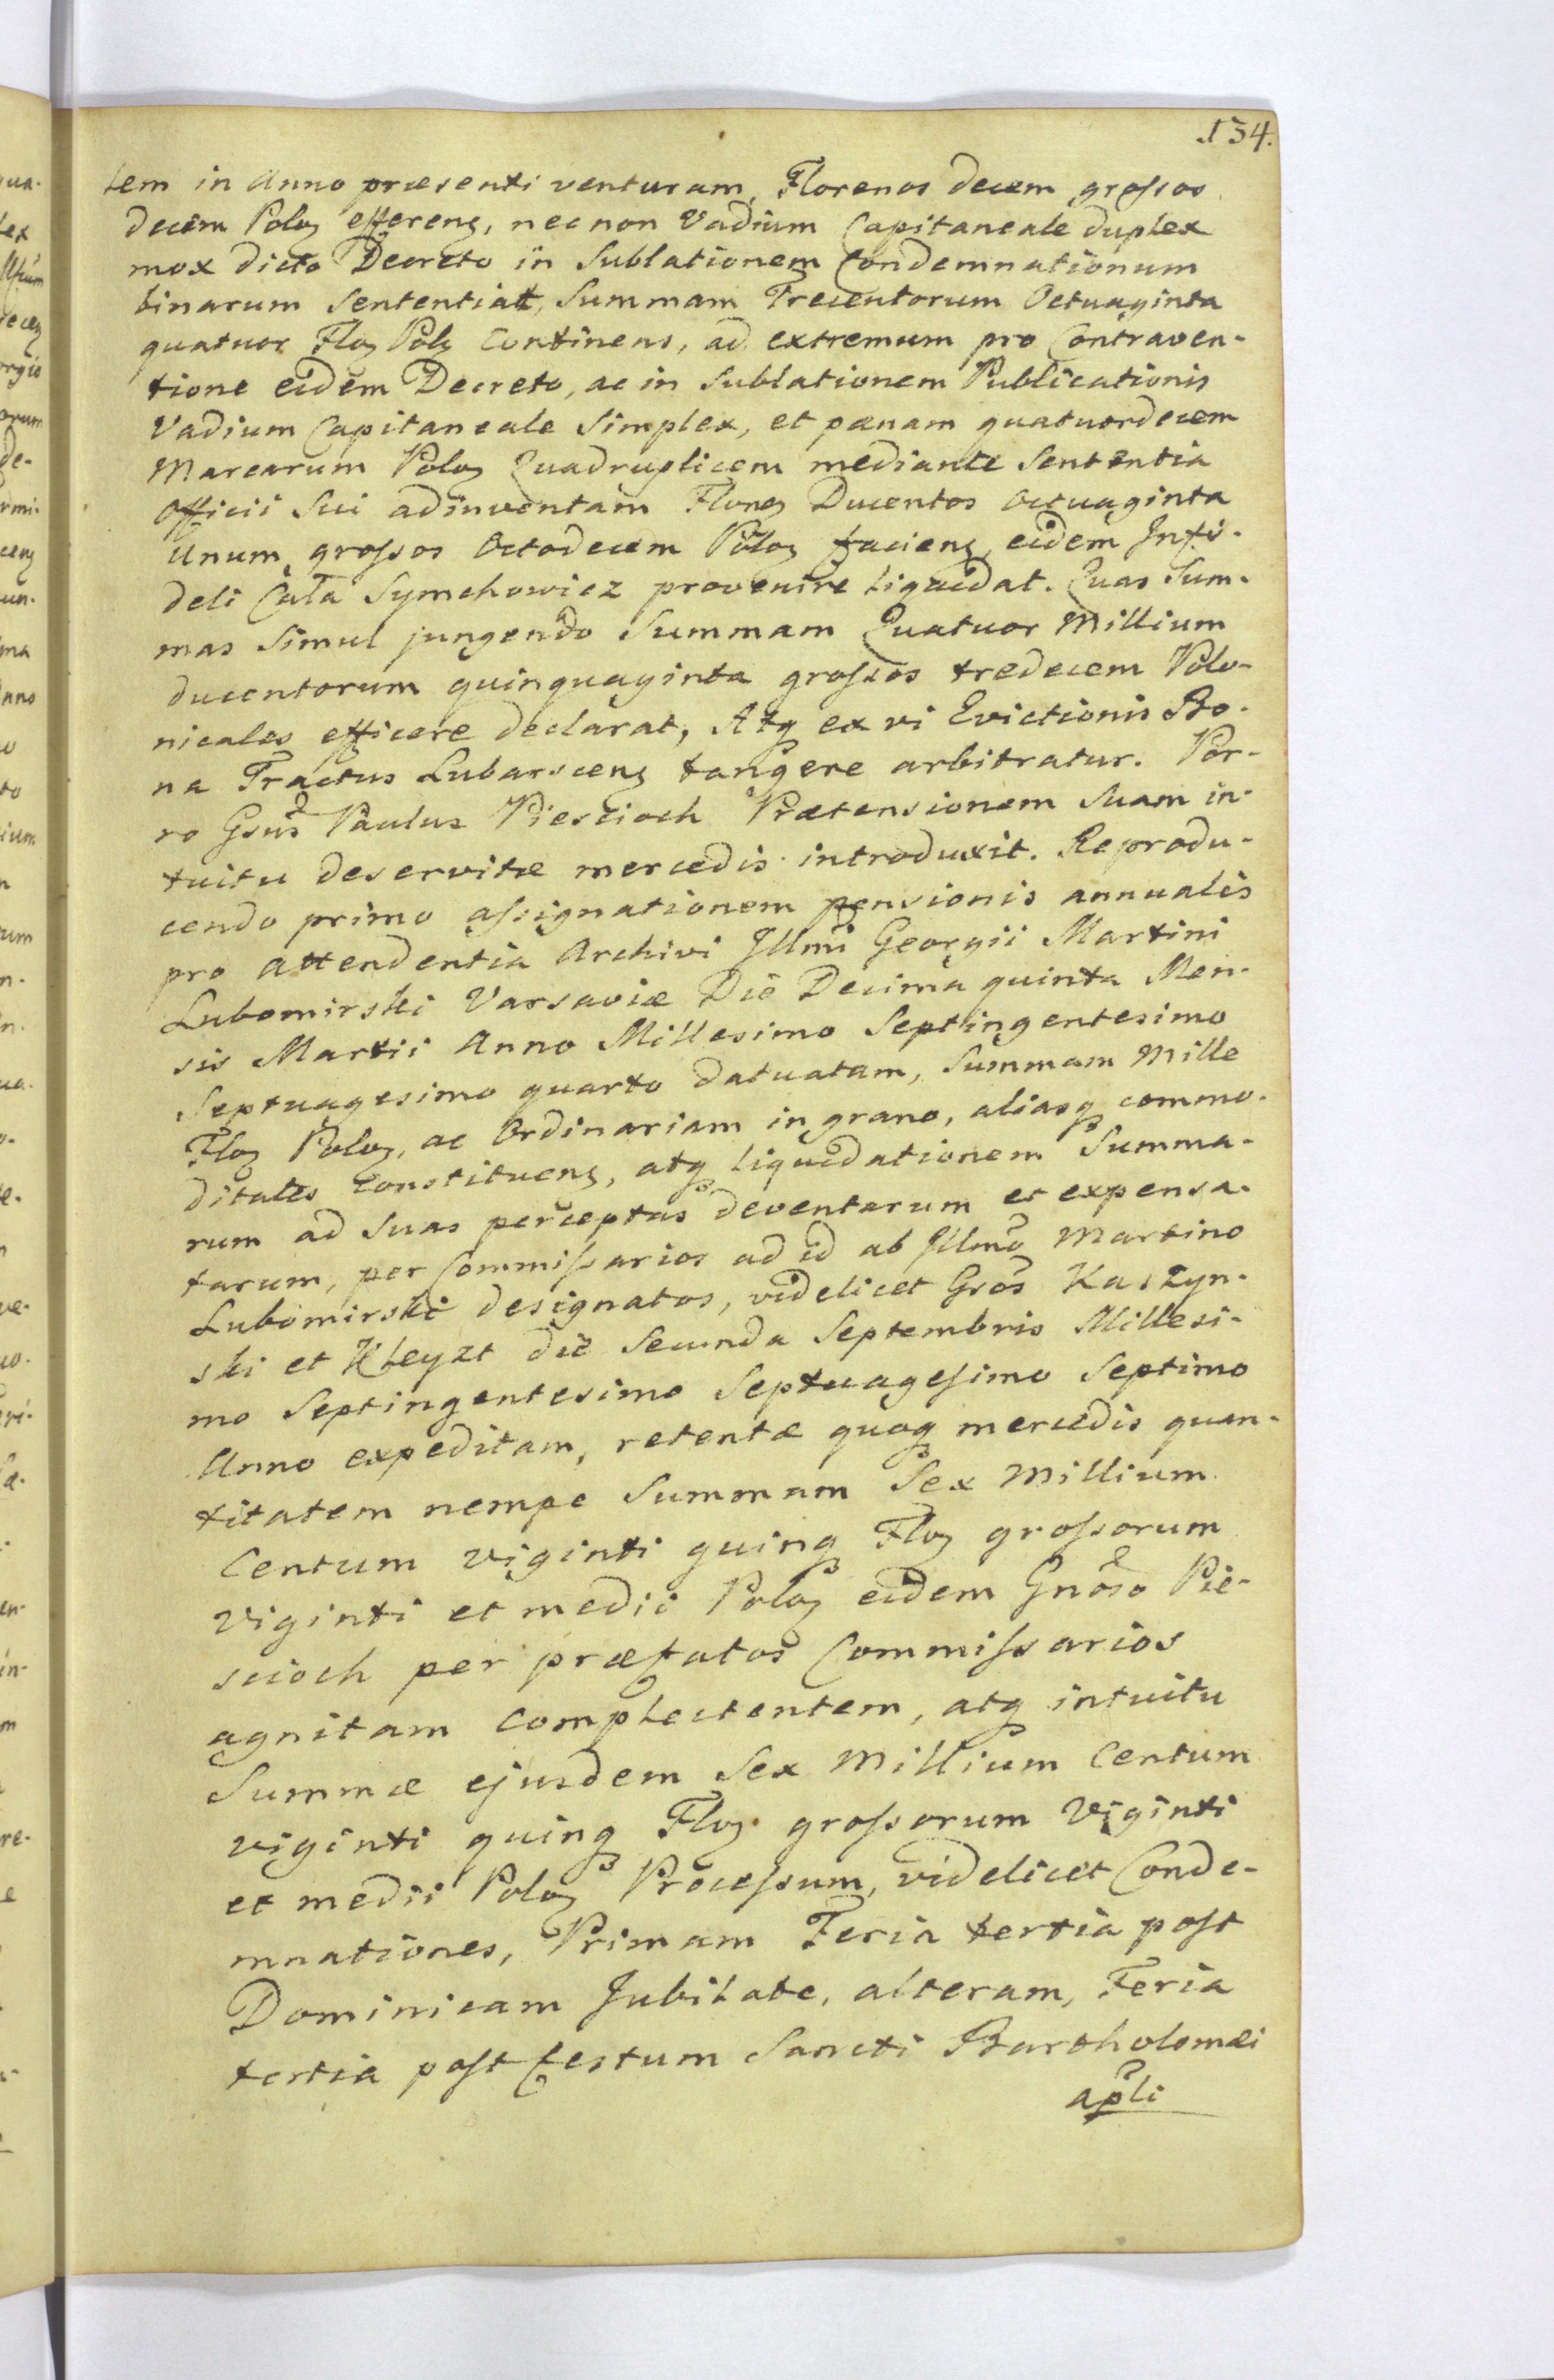 134.
tem in Anno præsenti venturam, Florenos decem grossos
decem Poloꝫ efferenꝫ, nec non Vadium Capitaneale duplex
mox dicto Decreto in Sublationem Condemnationum
binarum Sententiat, Summam Trecentorum Octuaginta
quatuor Floꝫ Polꝫ Continens, ad extremum pro Contraven-
tione eidem Decreto, ac in Sublationem Publicationis
Vadium Capitaneale Simplex, et pænam quatuordecem
Marcarum Poloꝫ Quadruplicem mediante Sententia
Officii Sui adinventam Florꝫ Ducentos Octuaginta
Unum, grossos Octodecem Poloꝫ facienꝫ, eidem Infi-
deli Cała Symchowicz provenire liquidat. Quas Sum-
mas Simul jungendo Summam Quatuor Millium
ducentorum quinquaginta grossos tredecem Polo-
nicales efficere declarat, Atqꝫ ex vi Evictionis Bo-
na Tractus Lubarscenꝫ tangere arbitratur. Por-
ro Gsus Paulus Piescioch Prætensionem Suam in-
tuitu deservitæ mercedis introduxit. Reprodu-
cendo primo assignationem pensionis annualis
pro attendentia Archivi Illmi Georgii Martini
Lubomirski Varsaviæ Die Decima quinta Men-
sis Martii Anno Millesimo Septingentesimo
Septuagesimo quarto datuatam, Summam Mille
Floꝫ Poloꝫ, ac Ordinariam in grano, aliasqꝫ commo-
ditates Constituenꝫ, atqꝫ liquidationem Summa-
rum ad Suas perceptas deventarum et expensa-
tarum, per Commissarios ad id ab Illmo Martino
Lubomirski designatos, videlicet Gros Kaszyn-
ski et Kleyzt die Secunda Septembris Millesi-
mo Septingentesimo Septuagesimo Septimo
Anno expeditam, retentæ quoqꝫ mercedis quan-
titatem nempe Summam Sex Millium
Centum viginti quinqꝫ Floꝫ grossorum
viginti et medii Poloꝫ eidem Gnoso Pie-
scioch per præfatos Commissarios
agnitam complectentem, atqꝫ intuitu
Summæ ejusdem Sex Millium Centum
viginti quinqꝫ Floꝫ grossorum Viginti
et medii Poloꝫ Processum, videlicet Conde-
mnationes, Primam Feria tertia post
Dominicam Jubilate, alteram, Feria
tertia post festum Sancti Bartholomæi
apli